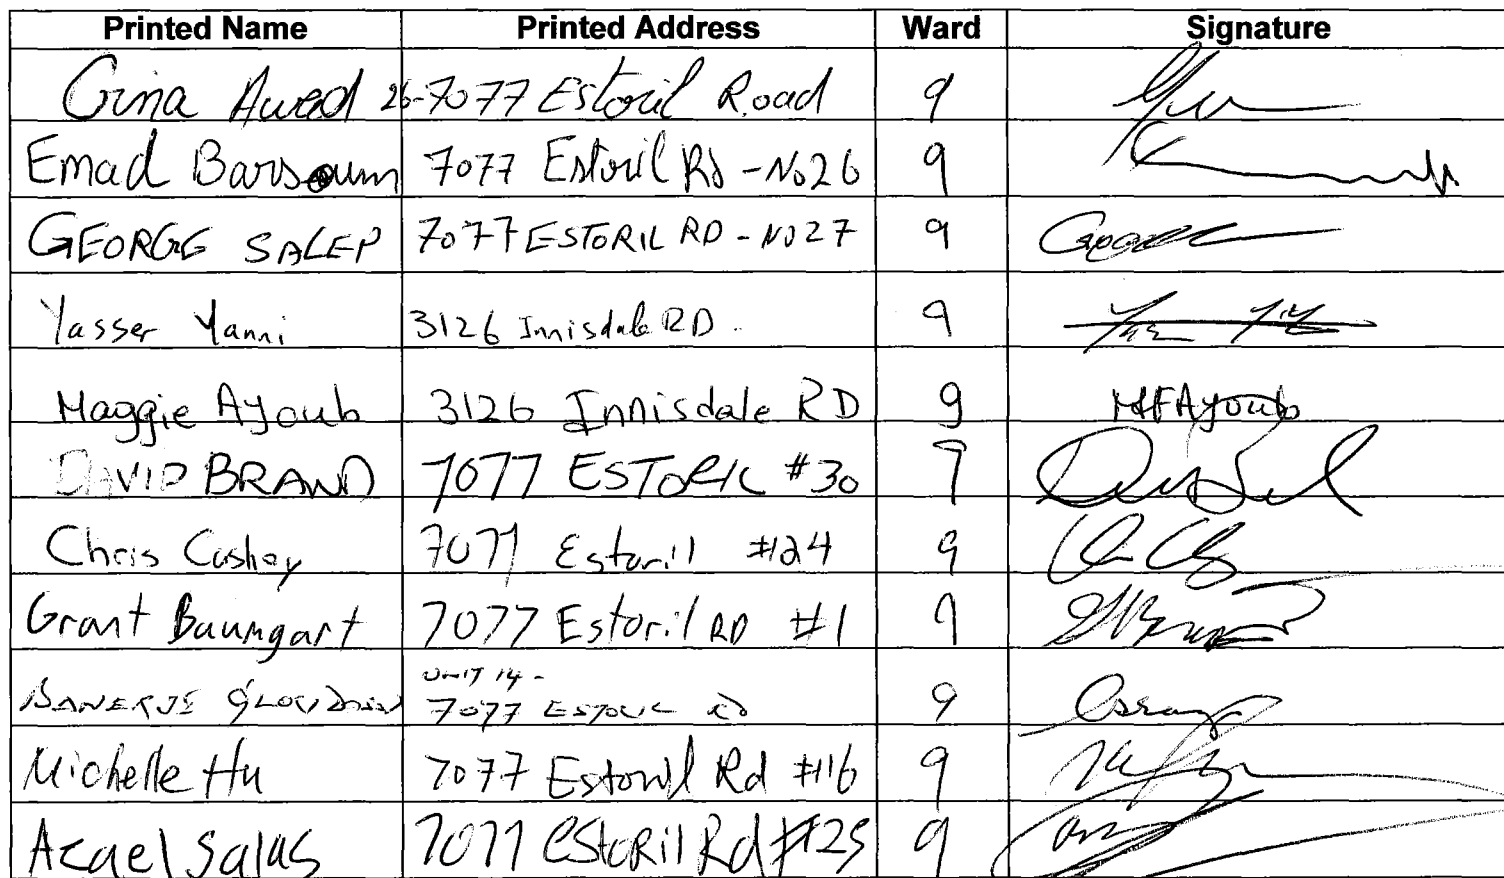 Printed Name Printed Address Ward Signature
Gina Awad 26-7077 Estoril Road 9
Emad Barsoum 7077 Estoril Rd - No 26 9
GEORGE SALEP 7077 ESTORIL RD - NO 27 9
Yasser Yanni 3126 Innisdale RD. 9
Maggie Ayoub 3126 Innisdale RD 9 MFAyoub
DAVID BRAND 7077 ESTORIL #30 9
Chris Cushey 7077 Estoril #24 9
Grant Baumgart 7077 Estoril RD #1 9
UNIT 14 -
BANERJE 7077 ESTORIL RD 9
Michelle Hu 7077 Estoril Rd #16 9
Azael Salas 7077 EStoRil Rd #25 9